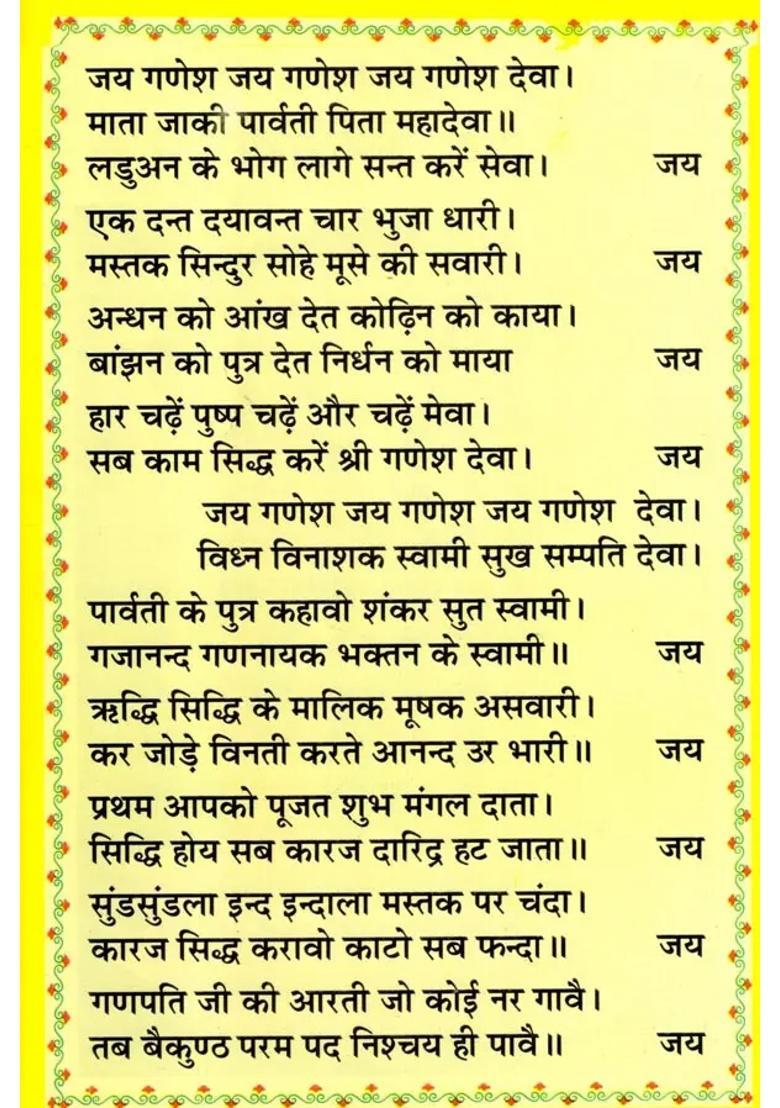 जय गणेश जय गणेश जय गणेश देवा।
माता जाकी पार्वती पिता महादेवा॥
लडुअन के भोग लागे सन्त करें सेवा। जय
एक दन्त दयावन्त चार भुजा धारी।
मस्तक सिन्दुर सोहे मूसे की सवारी। जय
अन्धन को आंख देत कोढ़िन को काया।
बांझन को पुत्र देत निर्धन को माया जय
हार चढ़ें पुष्प चढ़ें और चढ़ें मेवा।
सब काम सिद्ध करें श्री गणेश देवा। जय
जय गणेश जय गणेश जय गणेश देवा।
विध्न विनाशक स्वामी सुख सम्पति देवा।
पार्वती के पुत्र कहावो शंकर सुत स्वामी।
गजानन्द गणनायक भक्तन के स्वामी॥ जय
ऋद्धि सिद्धि के मालिक मूषक असवारी।
कर जोड़े विनती करते आनन्द उर भारी॥ जय
प्रथम आपको पूजत शुभ मंगल दाता।
सिद्धि होय सब कारज दारिद्र हट जाता॥ जय
सुंडसुंडला इन्द इन्दाला मस्तक पर चंदा।
कारज सिद्ध करावो काटो सब फन्दा॥ जय
गणपति जी की आरती जो कोई नर गावै।
तब बैकुण्ठ परम पद निश्चय ही पावै॥ जय